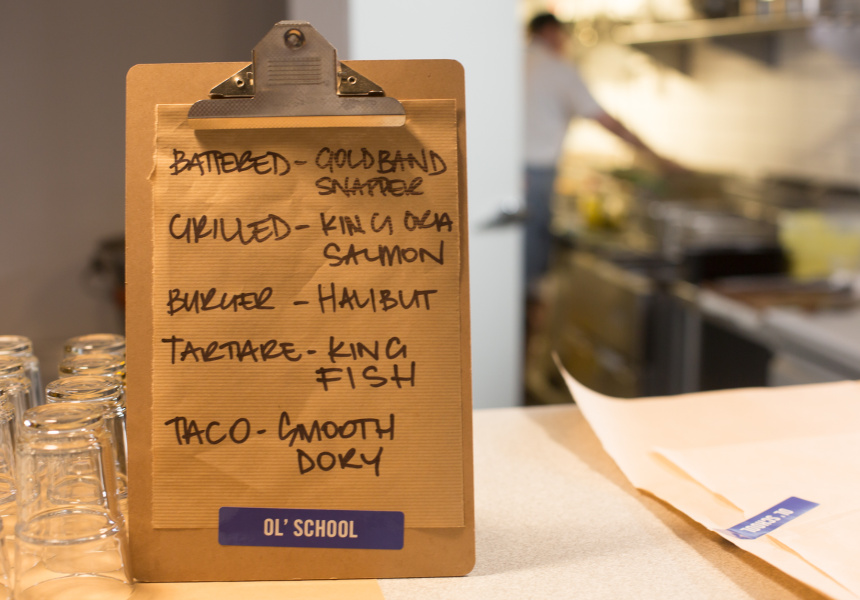 BATTERED - GOLDBAND
SNAPPER
GRILLED - KING ORA
SALMON
BURGER - HALIBUT
TARTARE - KING
FISH
TACO - SMOOTH
DORY
OL' SCHOOL
OL' SCHOOL